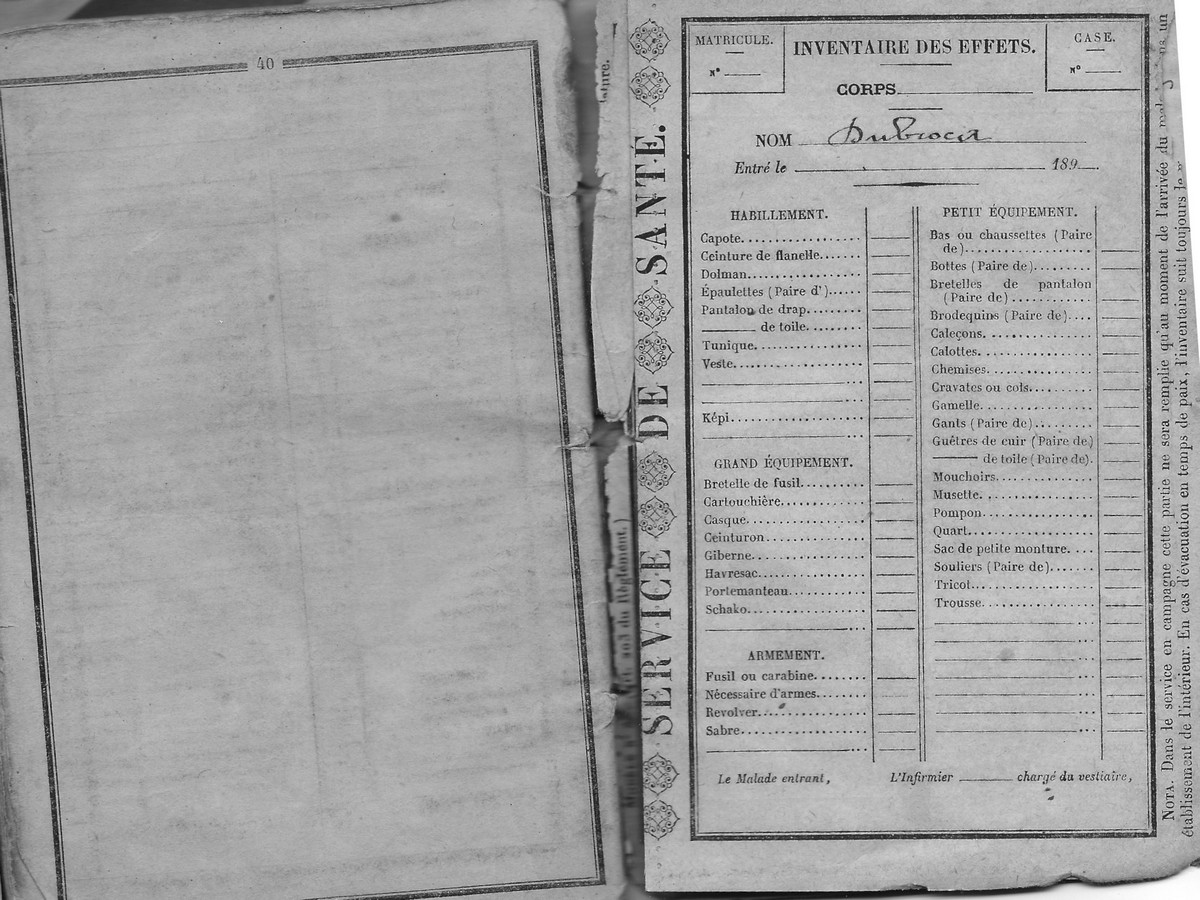 40
SERVICE DE SANTÉ.
MATRICULE.
N°
INVENTAIRE DES EFFETS.
CASE.
N°
CORPS
NOM
Entré le 189
HABILLEMENT.
Capote
Ceinture de flanelle
Dolman
Épaulettes (Paire d')
Pantalon de drap
de toile
Tunique
Veste
Képi
GRAND ÉQUIPEMENT.
Bretelle de fusil
Cartouchière
Casque
Ceinturon
Giberne
Havresac
Portemanteau
Schako
ARMEMENT.
Fusil ou carabine
Nécessaire d'armes
Revolver
Sabre
PETIT ÉQUIPEMENT.
Bas ou chaussettes (Paire
de)
Bottes (Paire de)
Bretelles de pantalon
(Paire de)
Brodequins (Paire de)
Caleçons
Calottes
Chemises
Cravates ou cols
Gamelle
Gants (Paire de)
Guêtres de cuir (Paire de)
de toile (Paire de).
Mouchoirs
Musette
Pompon
Quart
Sac de petite monture
Souliers (Paire de)
Tricot
Trousse
Le Malade entrant,
L'Infirmier chargé du vestiaire,
NOTA. Dans le service en campagne cette partie ne sera remplie qu'au moment de l'arrivée du un
établissement de l'intérieur. En cas d'évacuation en temps de paix, l'inventaire suit toujours le
du Règlement.)